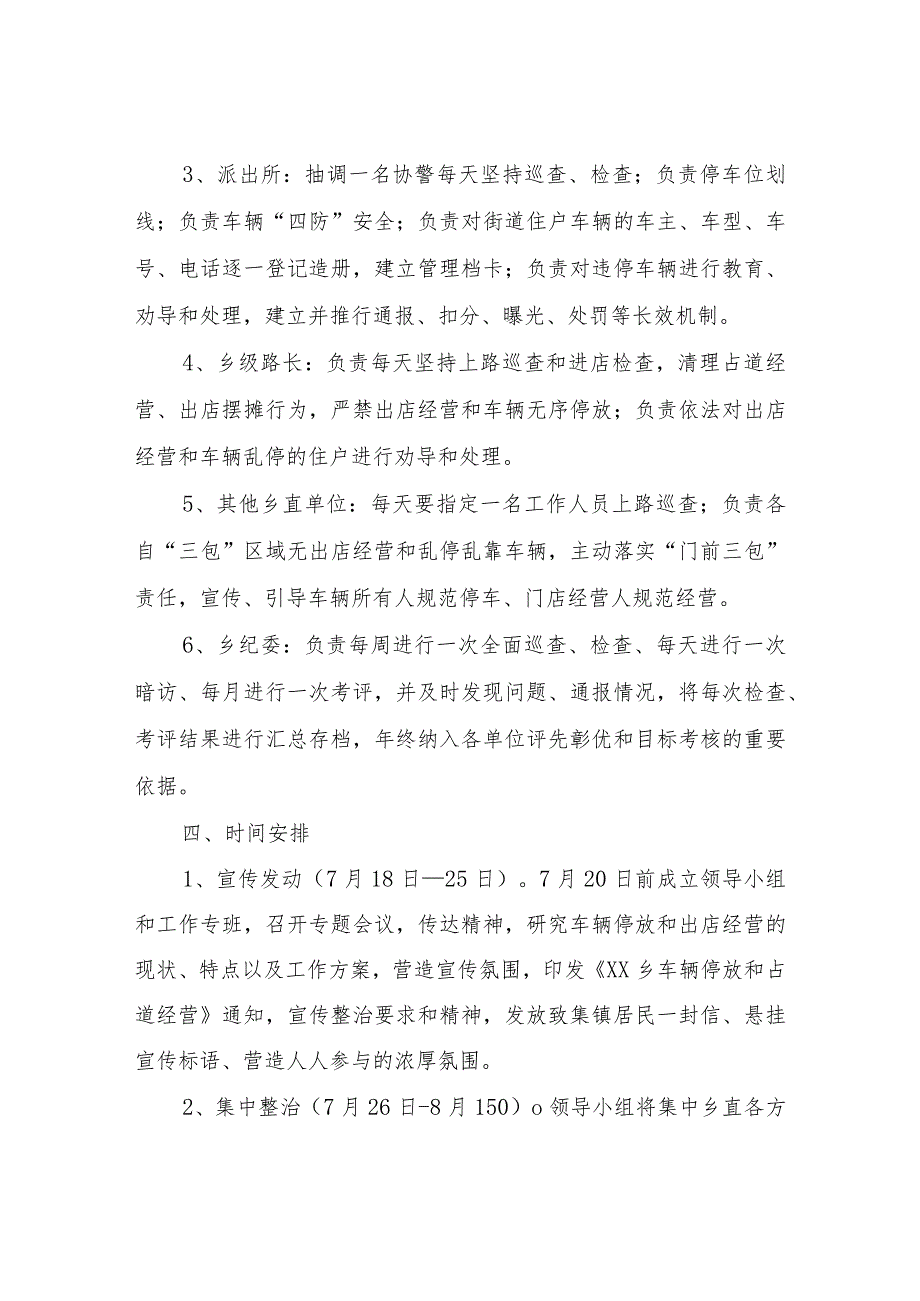 3、派出所：抽调一名协警每天坚持巡查、检查；负责停车位划
线；负责车辆“四防”安全；负责对街道住户车辆的车主、车型、车
号、电话逐一登记造册，建立管理档卡；负责对违停车辆进行教育、
劝导和处理，建立并推行通报、扣分、曝光、处罚等长效机制。
4、乡级路长：负责每天坚持上路巡查和进店检查，清理占道经
营、出店摆摊行为，严禁出店经营和车辆无序停放；负责依法对出店
经营和车辆乱停的住户进行劝导和处理。
5、其他乡直单位：每天要指定一名工作人员上路巡查；负责各
自“三包”区域无出店经营和乱停乱靠车辆，主动落实“门前三包”
责任，宣传、引导车辆所有人规范停车、门店经营人规范经营。
6、乡纪委：负责每周进行一次全面巡查、检查、每天进行一次
暗访、每月进行一次考评，并及时发现问题、通报情况，将每次检查、
考评结果进行汇总存档，年终纳入各单位评先彰优和目标考核的重要
依据。
四、时间安排
1、宣传发动（7月18日—25日）。7月20日前成立领导小组
和工作专班，召开专题会议，传达精神，研究车辆停放和出店经营的
现状、特点以及工作方案，营造宣传氛围，印发《XX乡车辆停放和占
道经营》通知，宣传整治要求和精神，发放致集镇居民一封信、悬挂
宣传标语、营造人人参与的浓厚氛围。
2、集中整治（7月26日-8月150）o领导小组将集中乡直各方